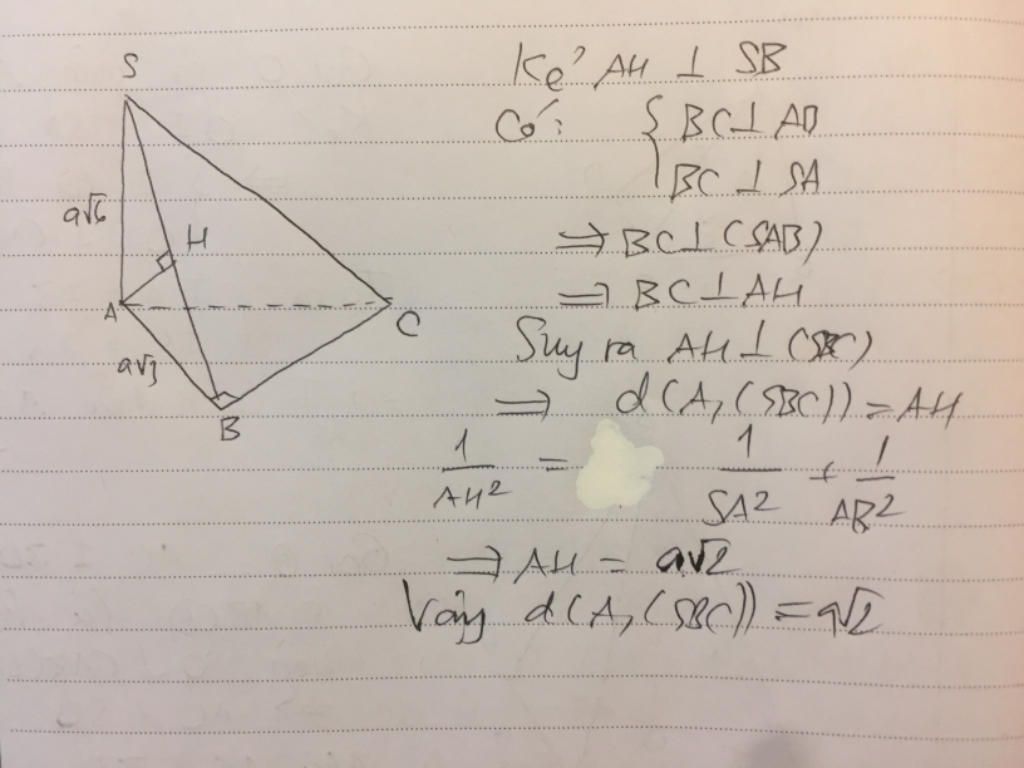 S
a√6
H
A
C
a√3
B
Kẻ AH ⊥ SB
Có: { BC ⊥ AB
BC ⊥ SA
⇒ BC ⊥ (SAB)
⇒ BC ⊥ AH
Suy ra AH ⊥ (SBC)
⇒ d(A, (SBC)) = AH
1/AH² = 1/SA² + 1/AB²
⇒ AH = a√2
Vậy d(A, (SBC)) = a√2